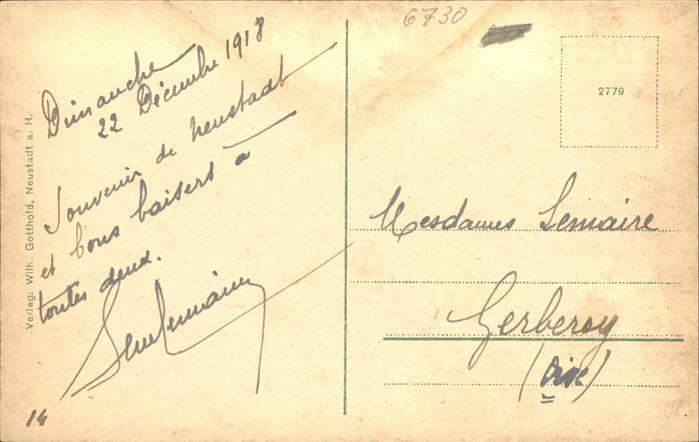 6730
Dimanche
22 Décembre 1918
Souvenir de Neustadt
et bons baisers à
toutes deux.
14
Verlag: Wilh. Gotthold, Neustadt a. H.
2779
Mesdames Lemaire
Gerberoy
(Oise)